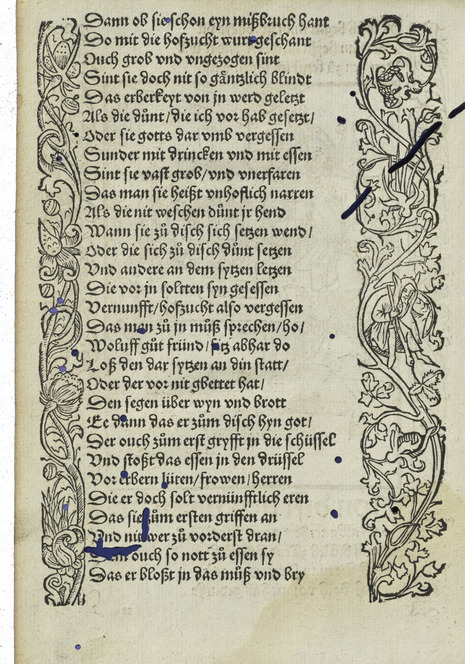 Dann ob sie schon eyn mißbruch hant
Do mit die hofzucht wurt geschant
Ouch grob vnd vngezogen sint
Sint sie doch nit so gäntzlich blindt
Das erberkeyt von jn werd geletzt
Als die dünt / die ich vor hab gesetzt /
Oder sie gotts dar vmb vergessen
Sunder mit drincken vnd mit essen
Sint sie vast grob / vnd vnerfaren
Das man sie heißt vnhoflich narren
Als die nit weschen dünt jr hend
Wann sie zů disch sich setzen wend /
Oder die sich zů disch dünt setzen
Vnd andere an dem sytzen letzen
Die vor jn soltten syn gesessen
Vernunfft / hofzucht also vergessen
Das man zů jn můß sprechen / ho /
Woluff gůt fründ / sitz abhar do
Loß den dar sytzen an din statt /
Oder der vor nit gbettet hat /
Den segen über wyn vnd brott
Ee dann das er zům disch hyn got /
Der ouch zům erst gryfft in die schüssel
Vnd stoßt das essen in den drüssel
Vor erbern lüten / frowen / herren
Die er doch solt vernünfftlich eren
Das sie zům ersten griffen an
Vnd nit wer zů vorderst dran /
ouch so nott zů essen sy
Das er bloßt jn das můß vnd bry